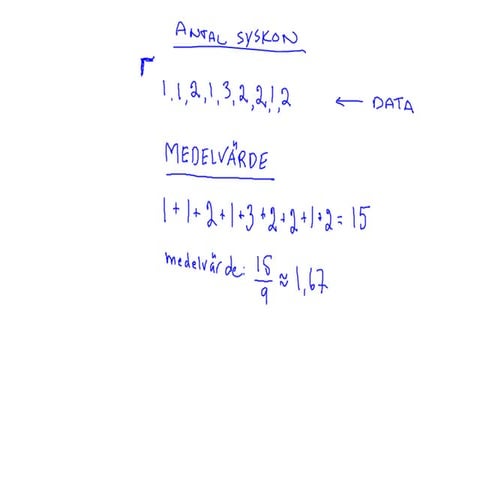 ANTAL SYSKON
1,1,2,1,3,2,2,1,2 ← DATA
MEDELVÄRDE
1+1+2+1+3+2+2+1+2=15
medelvärde: 15/9 ≈ 1,67